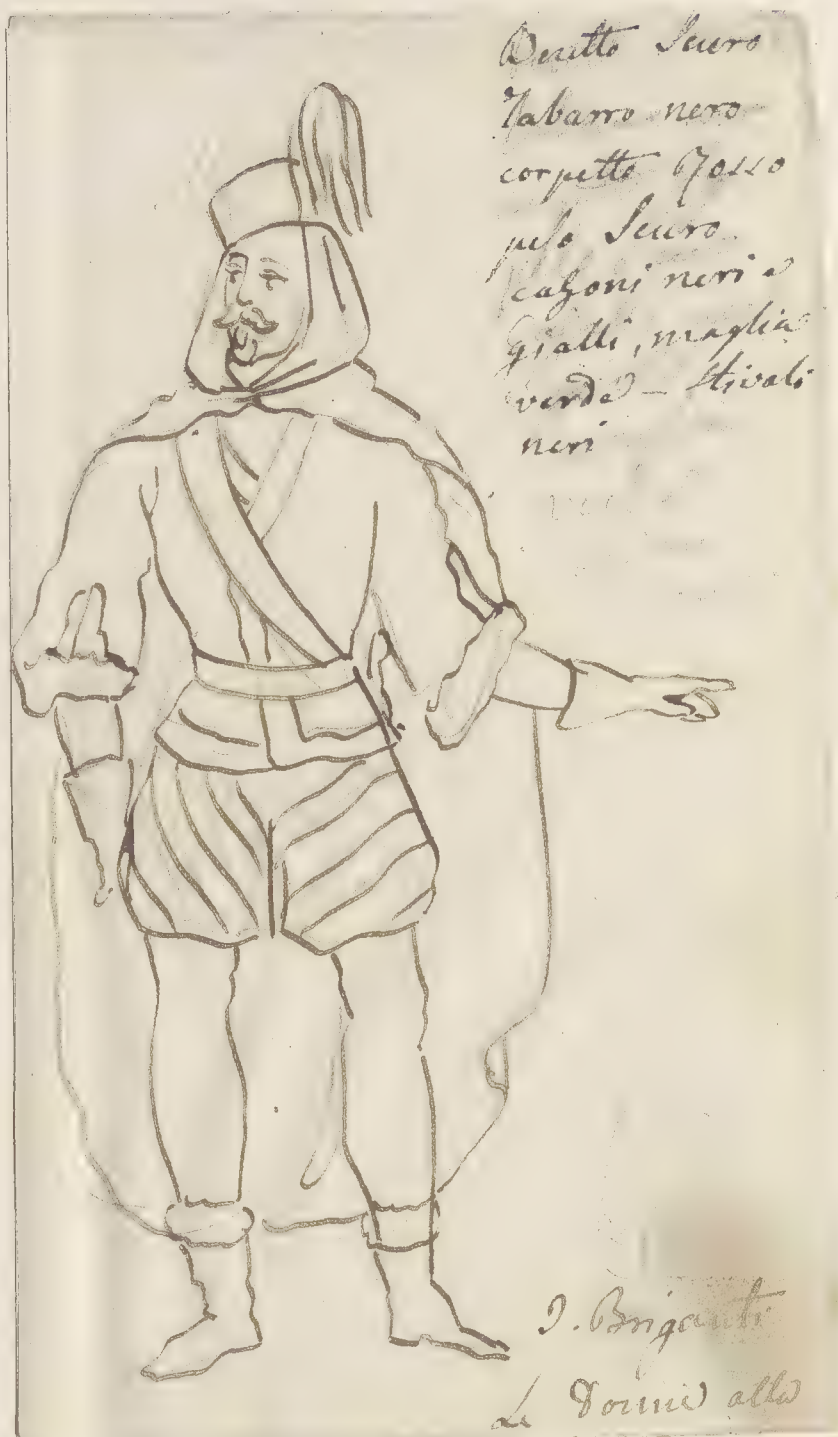 Beretto Scuro
Tabarro nero
corpetto Rosso
pelo Scuro
calzoni neri e
gialli, maglia
verde – Stivali
neri
I. Briganti
Le Donne alla